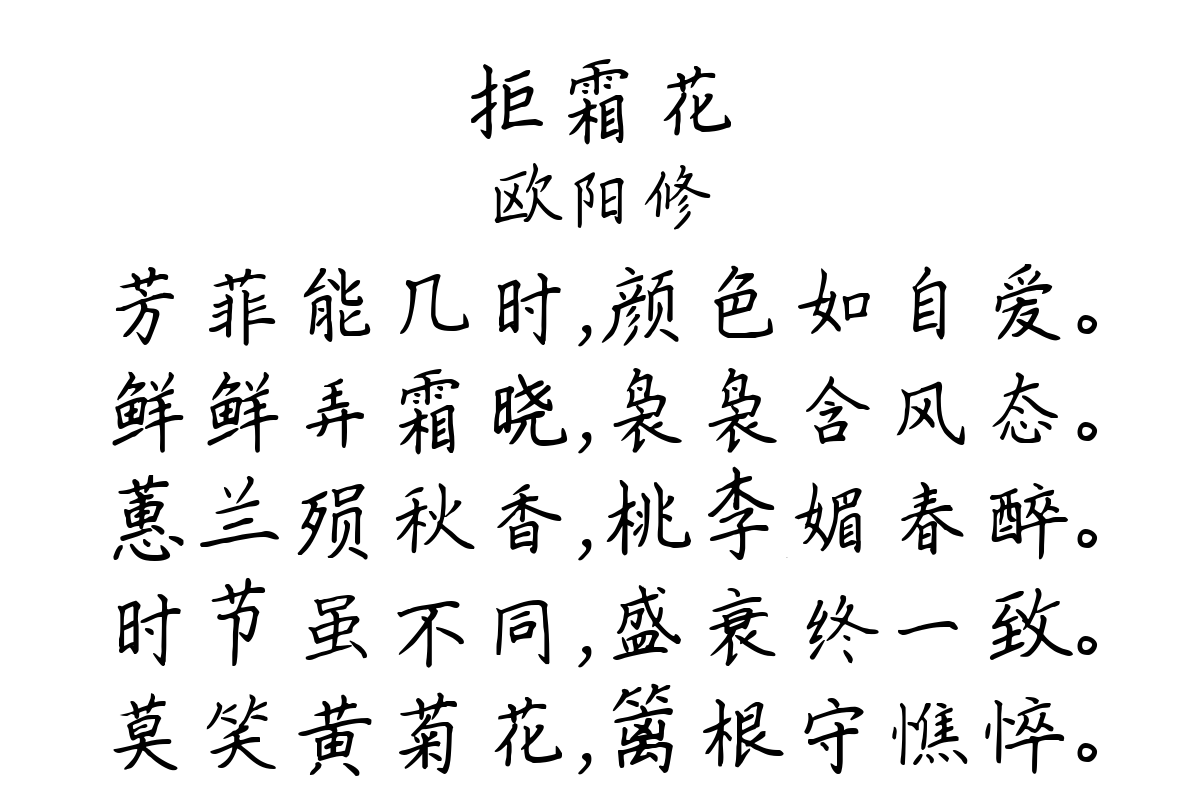 拒霜花
欧阳修
芳菲能几时,颜色如自爱。
鲜鲜弄霜晓,袅袅含风态。
蕙兰殒秋香,桃李媚春醉。
时节虽不同,盛衰终一致。
莫笑黄菊花,篱根守憔悴。